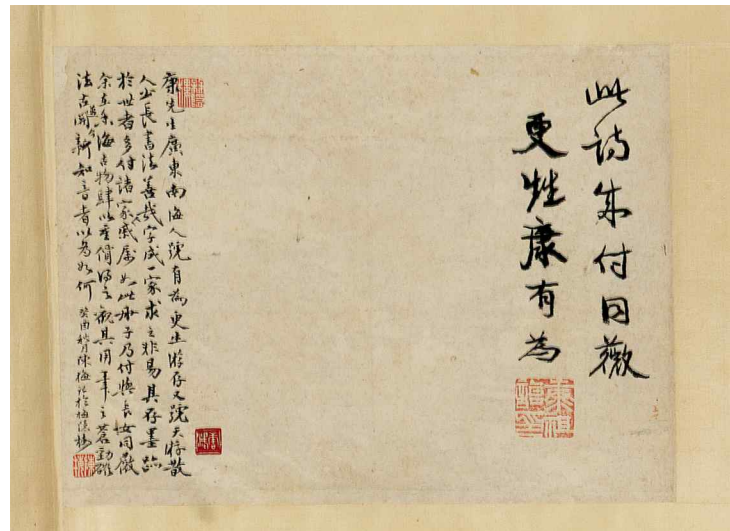 此詩朱付同薇
更甡康有為
康先生廣東南海人號有為更生游存又號天游散
人出長書法善哉字成一家求之非易其存墨跡
於世者多付諸家戚屬如此冊子乃付與長女同薇
余在東海古物肆以重價得之觀其用筆之蒼勁雄
法古開新知音者以為如何 癸酉秋月陳梅